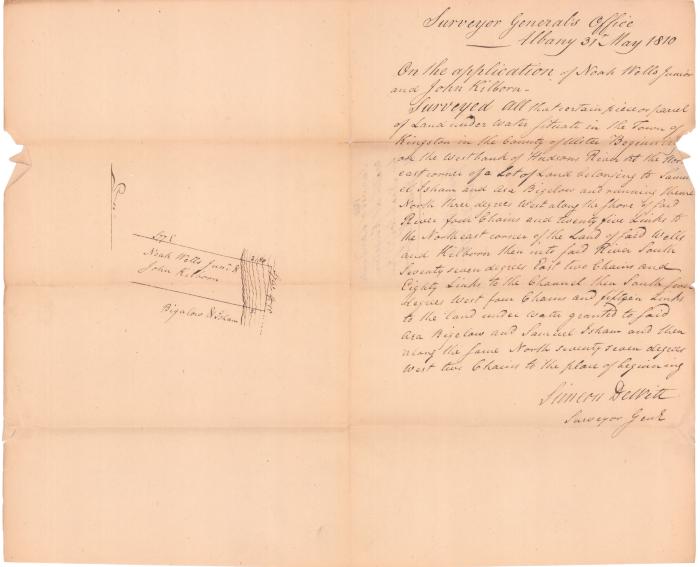 Surveyor Generals Office
Albany 31st May 1810
On the application of Noah Wells Junior
and John Kilborn -
Surveyed All that certain piece or parcel
of Land under water situate in the Town of
Kingston in the County of Ulster Beginning
on the West bank of Hudsons River at the North
east corner of a Lot of Land belonging to Samu
el Isham and Asa Bigelow and running thence
North three degrees West along the shore of said
River four Chains and twenty five Links to
the Northeast corner of the Land of said Wells
and Kilborn then into said River South
Seventy seven degrees East two Chains and
Eighty Links to the Channel then South
degrees West four Chains and fifteen Links
to the land under water granted to said
Asa Bigelow and Samuel Isham and then
along the same North seventy seven degrees
West two Chains to the place of beginning
Simeon DeWitt
Surveyor Genl
S 77 E
Noah Wells Junr. &
John Kilborn
Bigalow & Isham